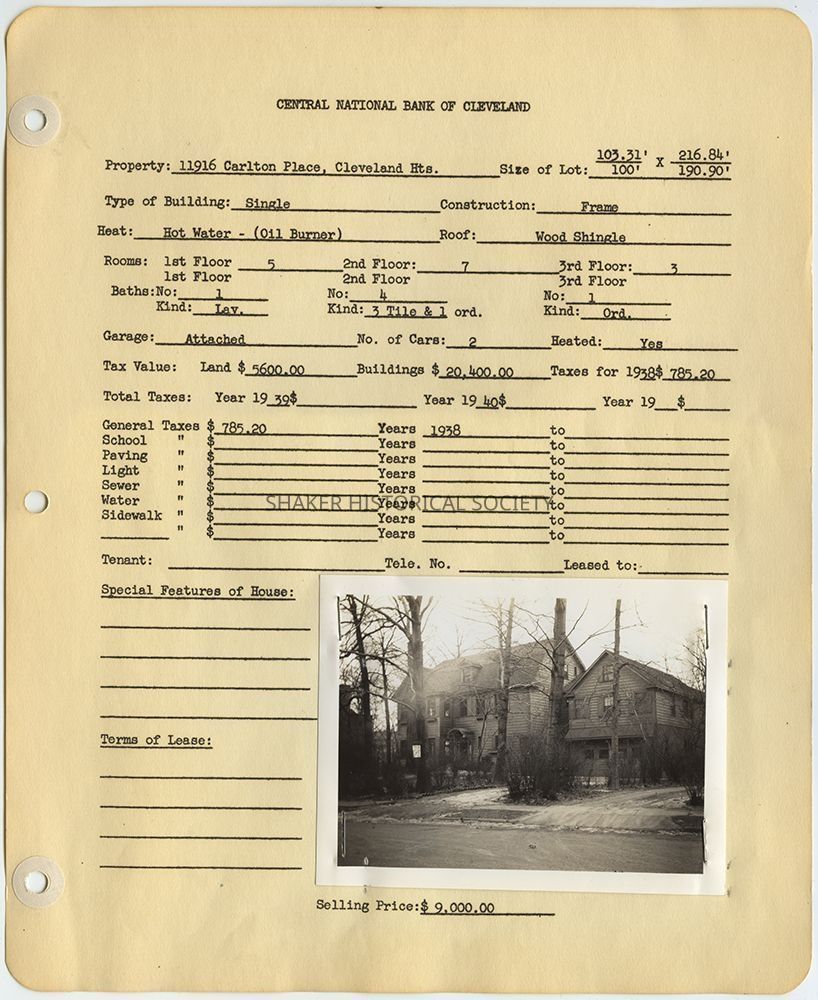 CENTRAL NATIONAL BANK OF CLEVELAND
Property: 11916 Carlton Place, Cleveland Hts. Size of Lot: 103.31' 100' X 216.84' 190.90'
Type of Building: Single Construction: Frame
Heat: Hot Water - (Oil Burner) Roof: Wood Shingle
Rooms: 1st Floor 5 2nd Floor: 7 3rd Floor: 3
1st Floor 2nd Floor 3rd Floor
Baths:No: 1 No: 4 No: 1
Kind: Lav. Kind: 3 Tile & 1 ord. Kind: Ord.
Garage: Attached No. of Cars: 2 Heated: Yes
Tax Value: Land $ 5600.00 Buildings $ 20,400.00 Taxes for 1938$ 785.20
Total Taxes: Year 19 39$ Year 19 40$ Year 19 $
General Taxes $ 785.20 Years 1938 to
School " $ Years to
Paving " $ Years to
Light " $ Years to
Sewer " $ Years to
Water " $ Years to
SHAKER HISTORICAL SOCIETY
Sidewalk " $ Years to
" $ Years to
Tenant: Tele. No. Leased to:
Special Features of House:
Terms of Lease:
Selling Price:$ 9,000.00